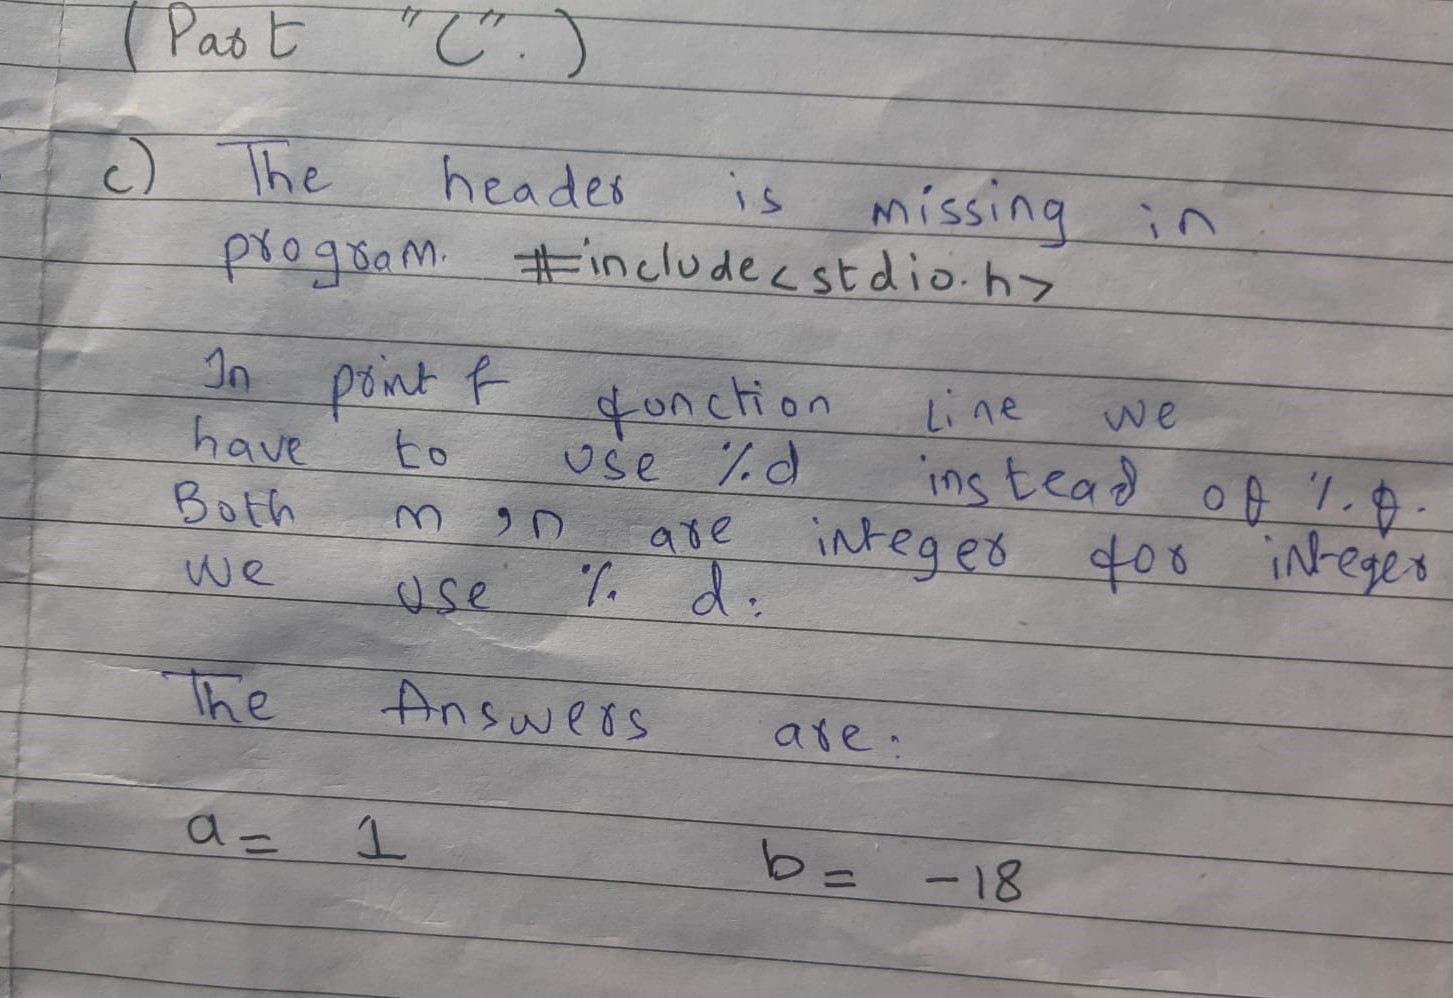 (Part "C".)
c) The header is missing in
program. #include<stdio.h>
In printf function Line we
have to use %d instead of %f.
Both m,n are integer for integer
we use % d.
The Answers are:
a= 1 b= -18